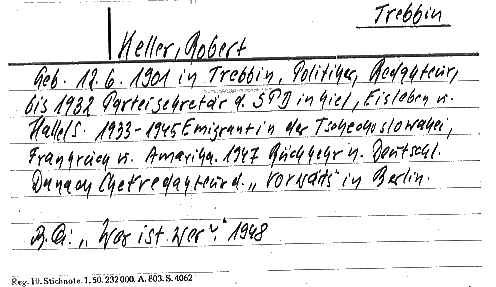 Trebbin
Heller, Robert
Geb. 12.6.1901 in Trebbin, Politiker, Redakteur,
bis 1932 Parteisekretär d. SPD in Kiel, Eisleben u.
Halle/S. 1933-1945 Emigrant in der Tschechoslowakei,
Frankreich u. Amerika. 1947 Rückkehr n. Deutschl.
Danach Chefredakteur d. „Vorwärts" in Berlin.
„Wer ist Wer". 1948
Reg. 10. Stichnote. 1. 50. 232000. A. 803. S. 4062